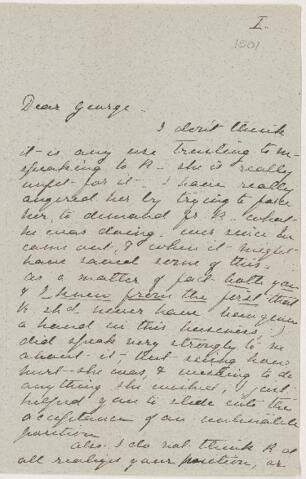 I.
1801
Dear George.
I don't think
it is any use trusting to m
speaking to R - she is really
unfit for it. I have really
angered her by trying to force
her, to demand fr R. what
he was doing. ever since I
came out, & when it might
have saved some of this.
As a matter of fact both you
& I knew from the first that
R shd. never have
a hand in this business. I
did speak very strongly to
about it - but seeing how
hurt she was, & wishing to do
anything she wished, I just
helped you to slide into the
acceptance of an
position
Also, I do not think R at
all realizes your position, or